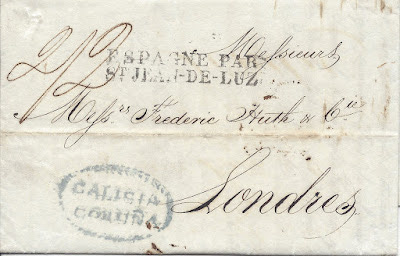 2/2
ESPAGNE PAR
ST JEAN-DE-LUZ
Messieurs
Messrs Frederic Huth & Cie
Londres
GALICIA
CORUÑA